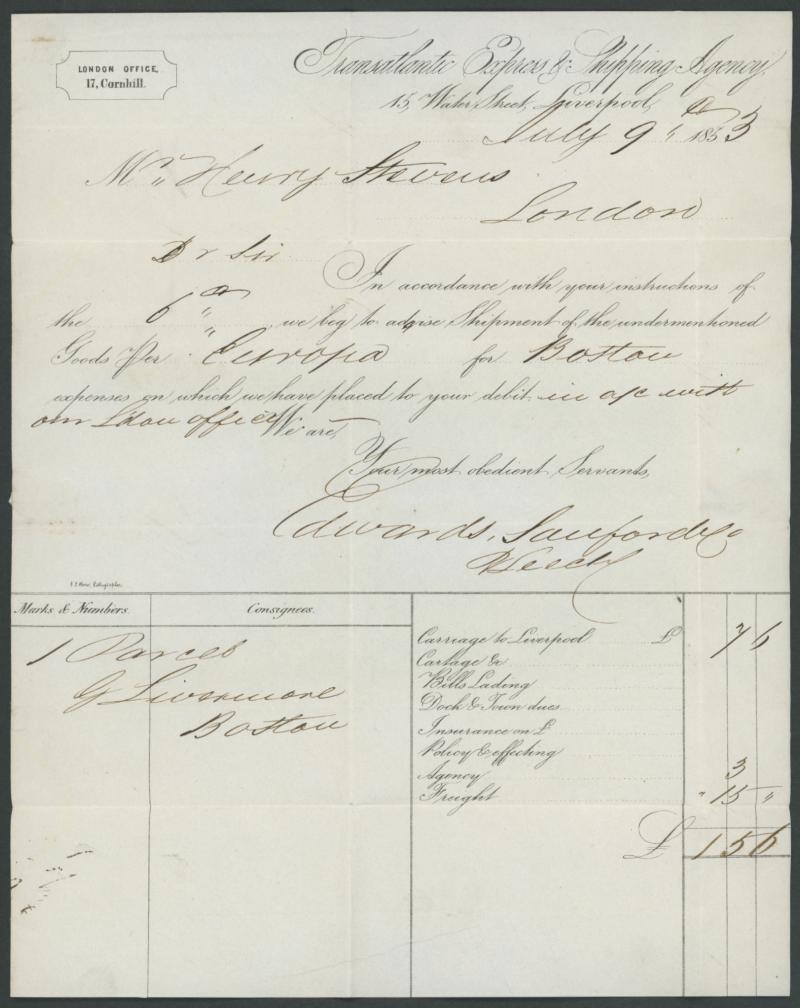 LONDON OFFICE,
17, Cornhill.
Transatlantic Express & Shipping Agency,
15, Water Street, Liverpool,
July 9th 1853
Mr. Henry Stevens
London
Dr Sir
In accordance with your instructions of
the 6th we beg to advise Shipment of the undermentioned
Goods Per Europa for Boston
expenses on which we have placed to your debit in a/c with
our Ldon office We are,
Your most obedient Servants,
Edwards, Sanford & Co
Marks & Numbers. Consignees.
1 Parcel
G Livermore
Boston
Carriage to Liverpool £ 7 6
Cartage &c
Bills Lading
Dock & Town dues
Insurance on £
Policy & effecting
Agency 3
Freight " 15 "
£ 1 5 6